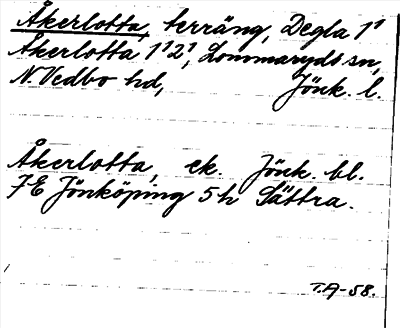 Åkerlotta, terräng, Degla 1¹
Åkerlotta 1¹2¹, Lommaryds sn,
N Vedbo hd, Jönk. l.
Åkerlotta, ek. Jönk. bl.
7E Jönköping 5h Sättra.
T.A-58.